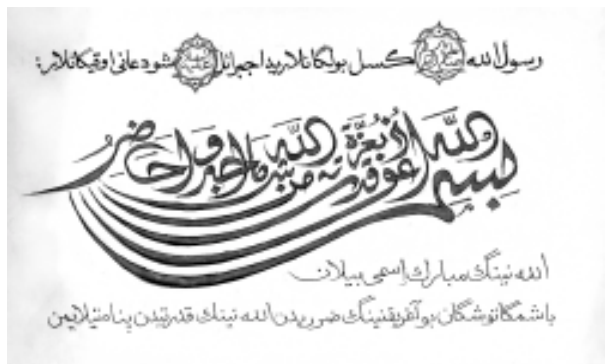 رسول الله كسل بولگانلاریدا جبرائل شو دعانی اوقیگانلار:
بسم الله أعوذ بعزة الله وقدرته من شر ما
الله نینگ مبارك اسمی بیلان
باشمگا توشگان بو آغریقنینگ ضرریدن الله نینك قدرتیدن پناه تیلایمن